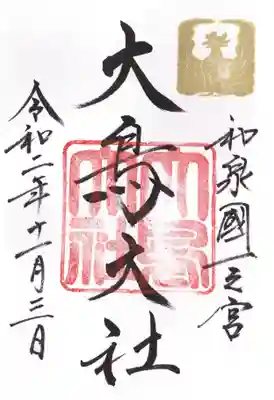 和泉國一之宮
大鳥大社
令和二年十一月三日